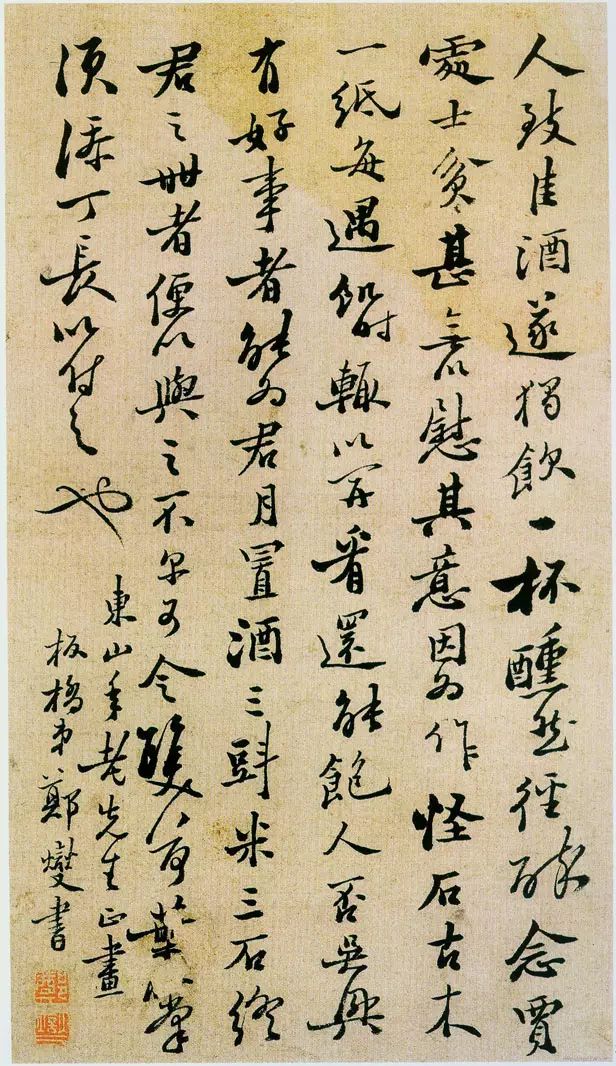 人致佳酒遂獨飲一杯醺然徑醉念賈
處士貧甚無以慰其意因為作怪石古木
一紙每遇飢時輒以開看還能飽人否吳興
有好事者能為君月置酒三斗米三石終
君之世者便以與之不爾可令雙荷葉
須添丁長以付之也
東山年老先生正畫
板橋弟鄭燮書